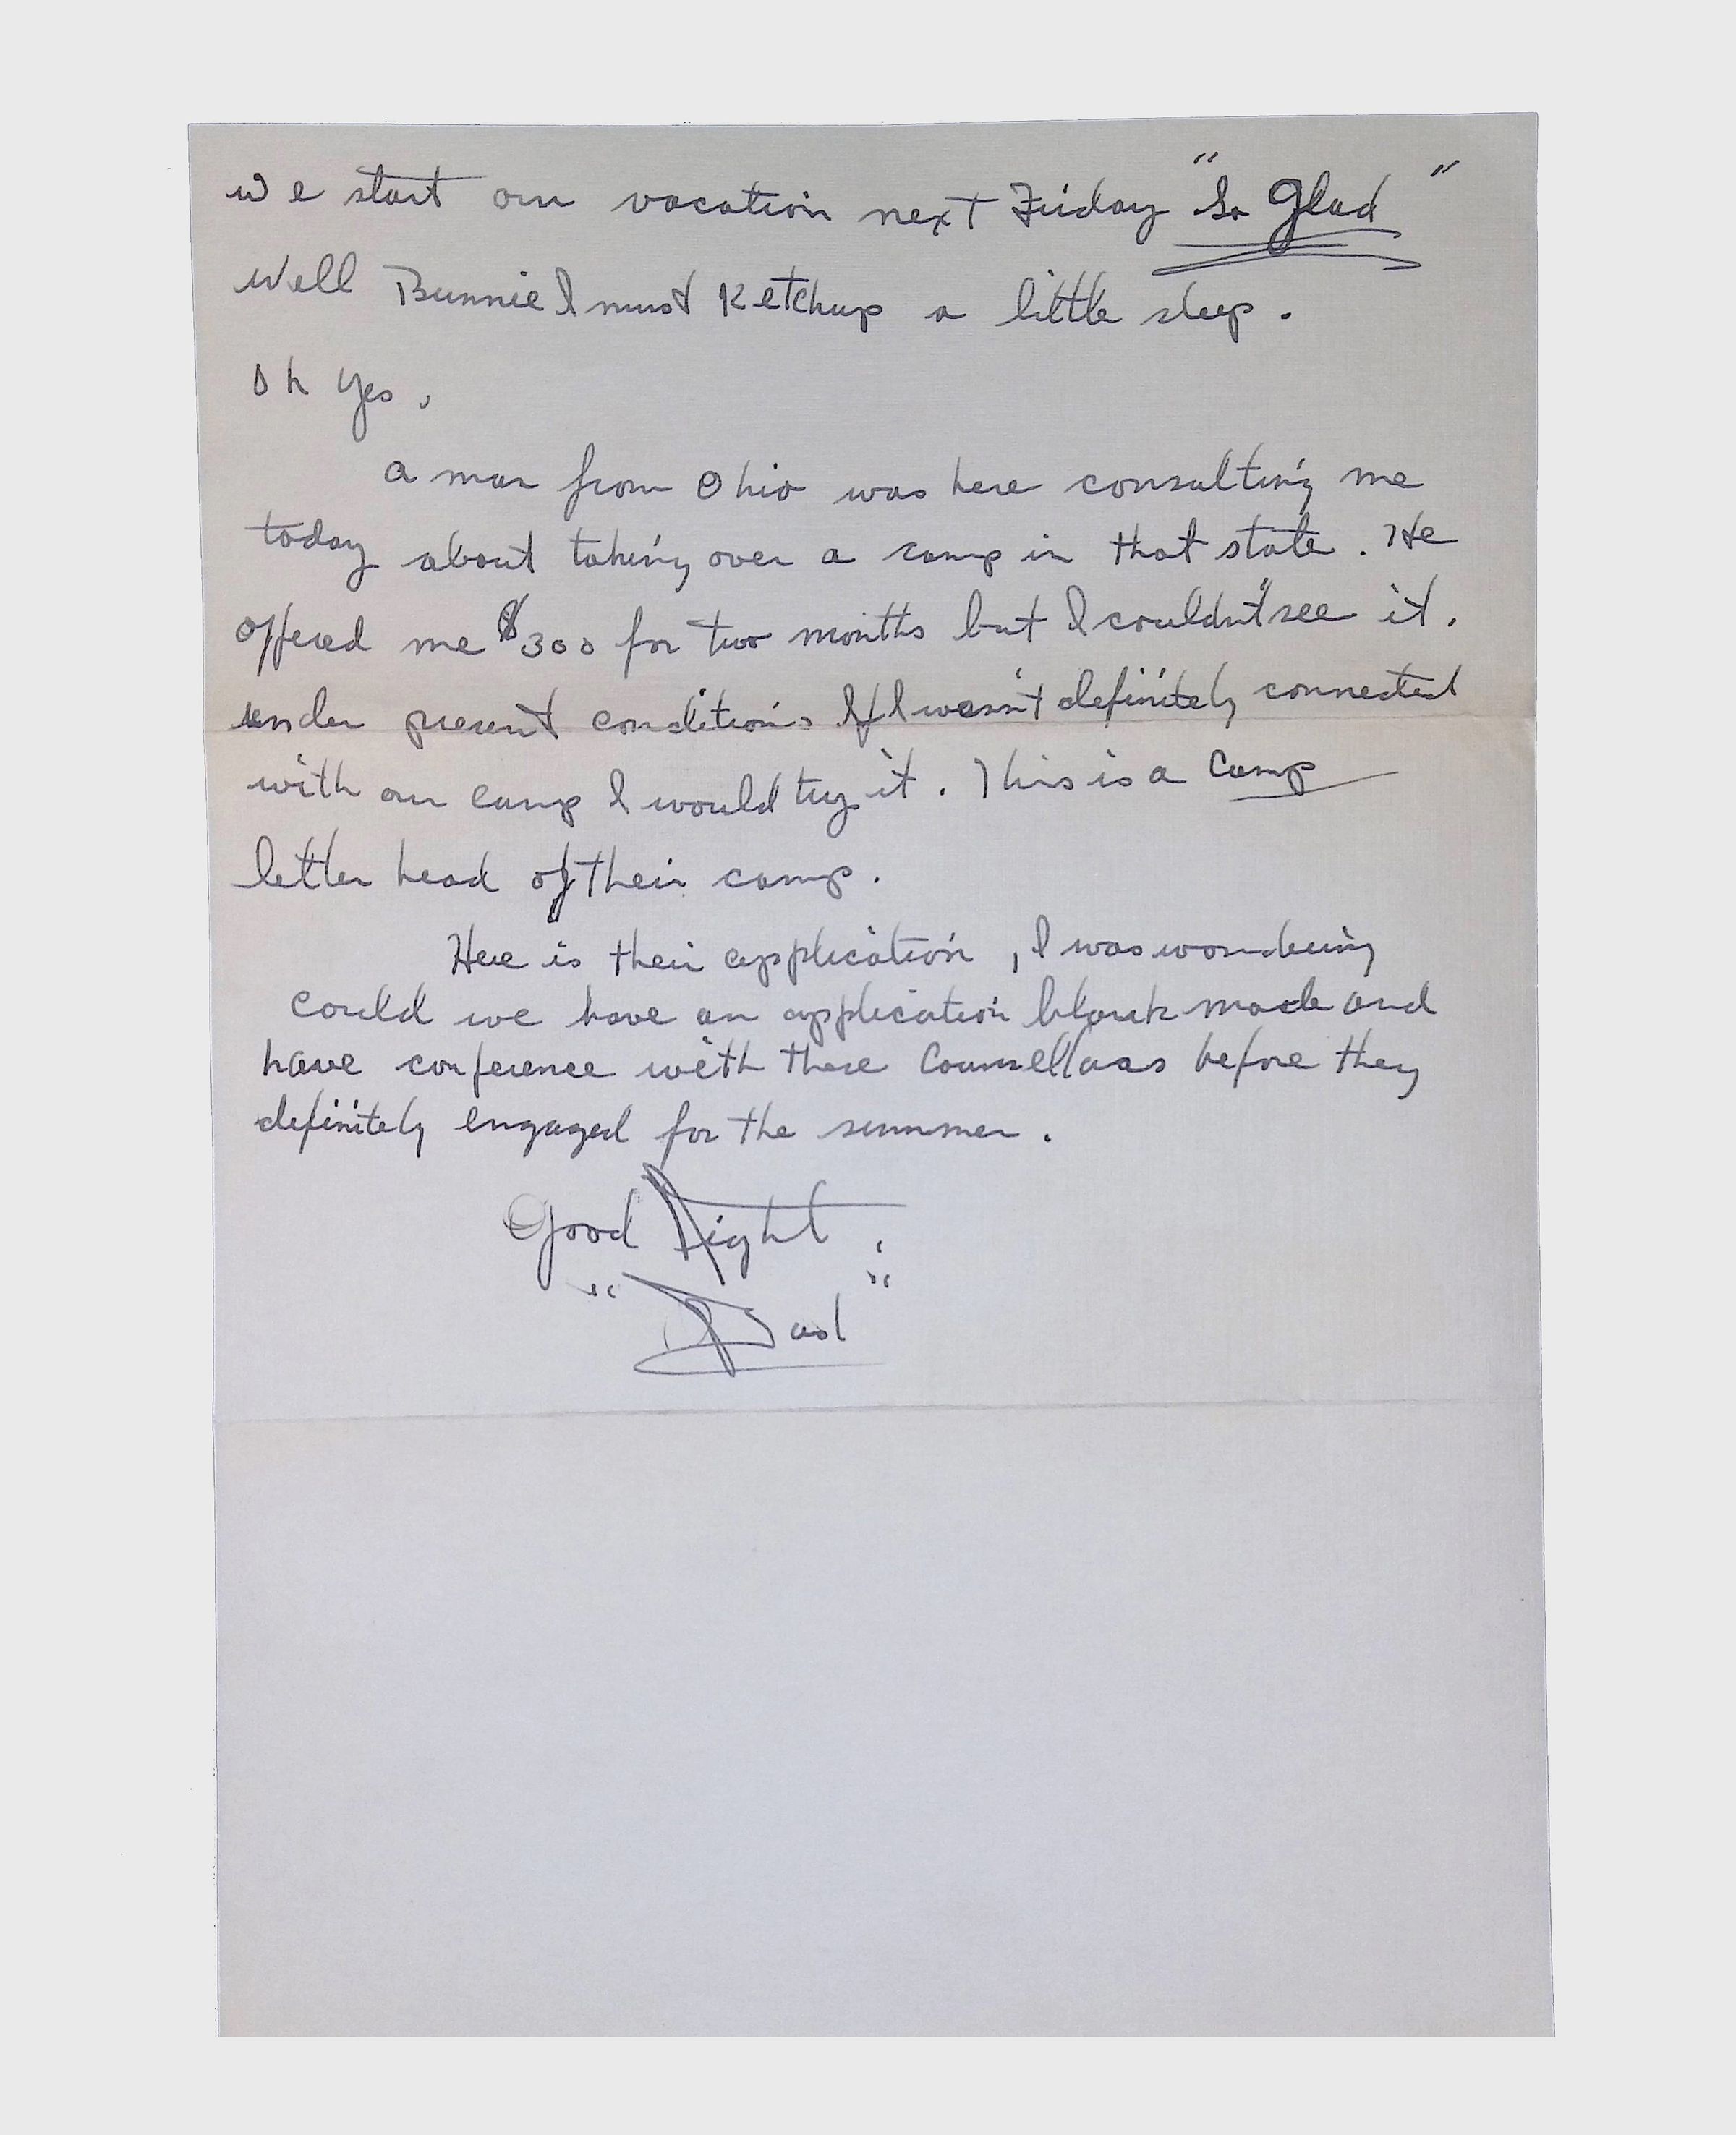 We start our vacation next Friday "So Glad"
Well Bunnie I must Ketchup a little sleep.
Oh Yes,
a man from Ohio was here consulting me
today about taking over a camp in that state. He
offered me $300 for two months but I couldn't see it.
under present conditions If I wasn't definitely connected
with our camp I would try it. This is a Camp
letter head of their camp.
Here is their application, I was wondering
could we have an application blank made and
have conference with these Counsellors before they
definitely engaged for the summer.
Good Night,
"Dad"